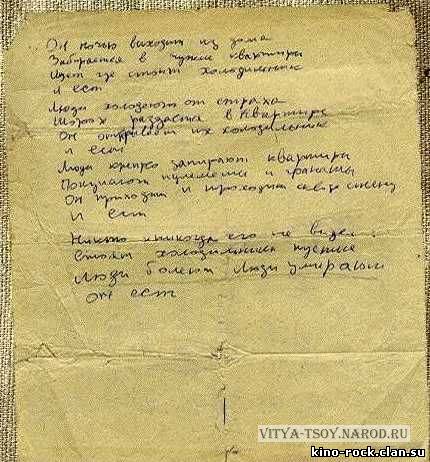 Он ночью выходит из дома
Забирается в чужие квартиры
Ищет где стоит холодильник
и ест
Люди холодеют от страха
Шорох раздается в квартире
Он открывает их холодильник
и ест
Люди крепко запирают квартиры
Покупают пулеметы и гранаты
Он приходит и проходит сквозь стену
И ест
Никто никогда его не видел
Стоят холодильники пустые
Люди болеют люди умирают
он ест
VITYA-TSOY.NAROD.RU
kino-rock.clan.su